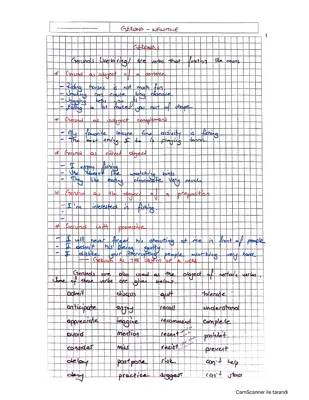 GERUND - INFINITIVE
1
GERUNDS
Gerunds (verb+ing) are verbs that function like nouns
* Gerund as subject of a sentence
- Riding horses is not much fun
- Smoking can cause lung cancer
- Jogging
- is not makes you out of shape
* Gerund as subject complement
- My favorite leisure time activity is fishing
- The most thing I do is playing
* Gerund as direct object
- I enjoy fishing
- We watching birds
- They like eating chocolate very much
* Gerund as the object of a preposition
- I'm interested in fishing
-
-
* Gerund with possessive
- I will never forget his shouting at me in front of people
- I admit his being guilty
- I dislike your interrupting people very hard
- GERUND AS THE OBJECT OF A VERB
Gerunds are also used as the object of certain verbs.
Some of these verbs are given below.
admit discuss quit tolerate
anticipate enjoy recall understand
appreciate imagine recommend complete
avoid mention resent prohibit
consider miss resist prevent
delay postpone risk can't help
deny practice suggest can't stand
CamScanner ile tarandı